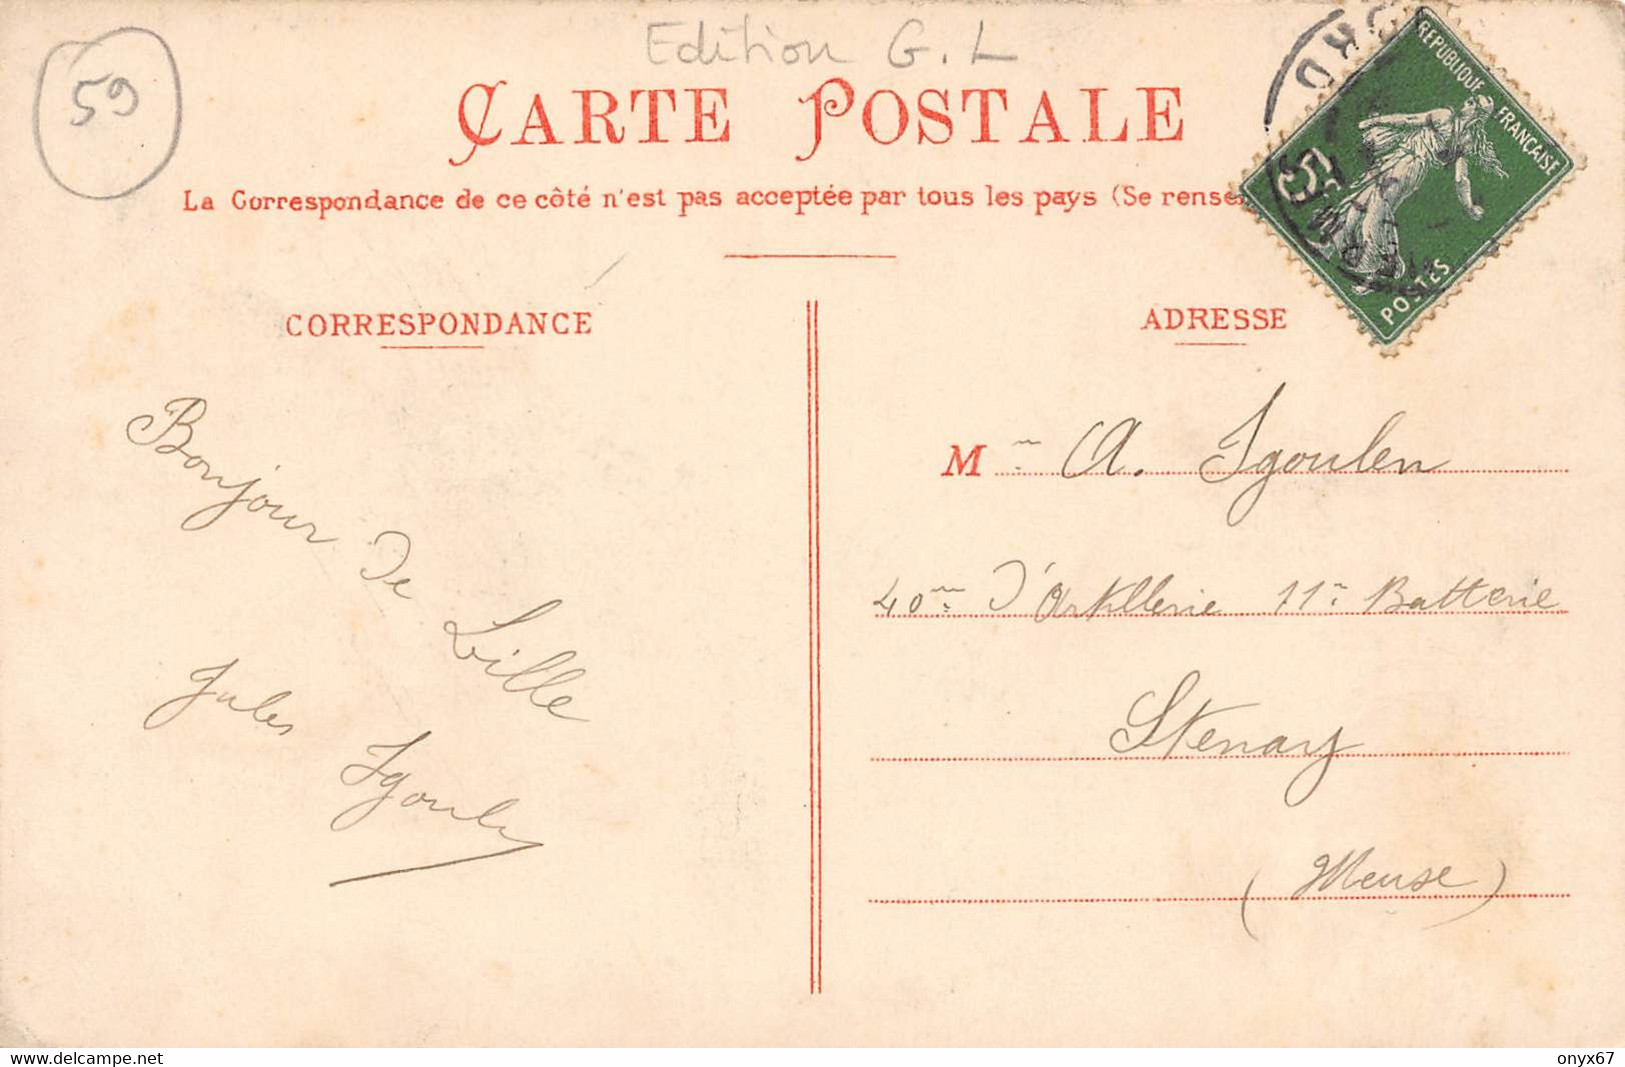 59
Edition G. L
CARTE POSTALE
La Correspondance de ce côté n'est pas acceptée par tous les pays (Se rense
REPUBLIQUE FRANÇAISE
5c
POSTES
CORRESPONDANCE
ADRESSE
Bonjour De Lille
Jules Igoulen
M r A. Igoulen
40me d'Artillerie 11e Batterie
Stenay
(Meuse)
delcampe.net
onyx67